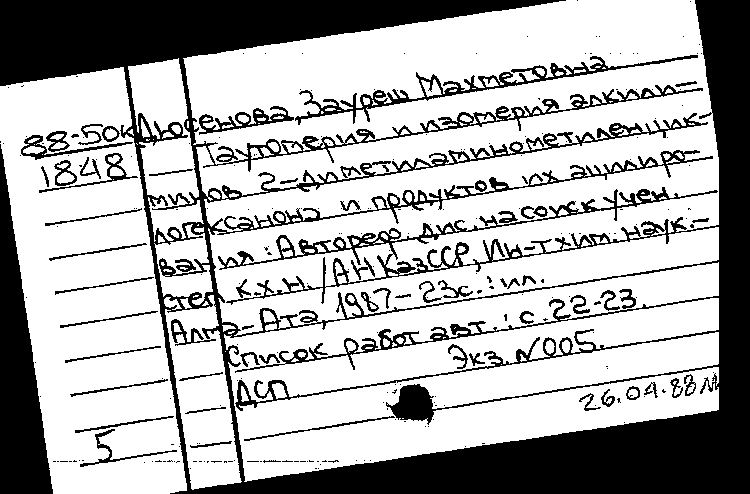 88-50к Дюсенова, Зауреш Махметовна.
1848 Таутомерия и изомерия алкили-
минов 2-диметиламинометиленцик-
логексанона и продуктов их ацилиро-
вания: Автореф. дис. на соиск учен.
степ. к.х.н. /АН КазССР, Ин-т хим. наук.-
Алма-Ата, 1987.- 23с.: ил.
Список работ авт.: с. 22-23.
ДСП Экз. №005.
5 26.04.88